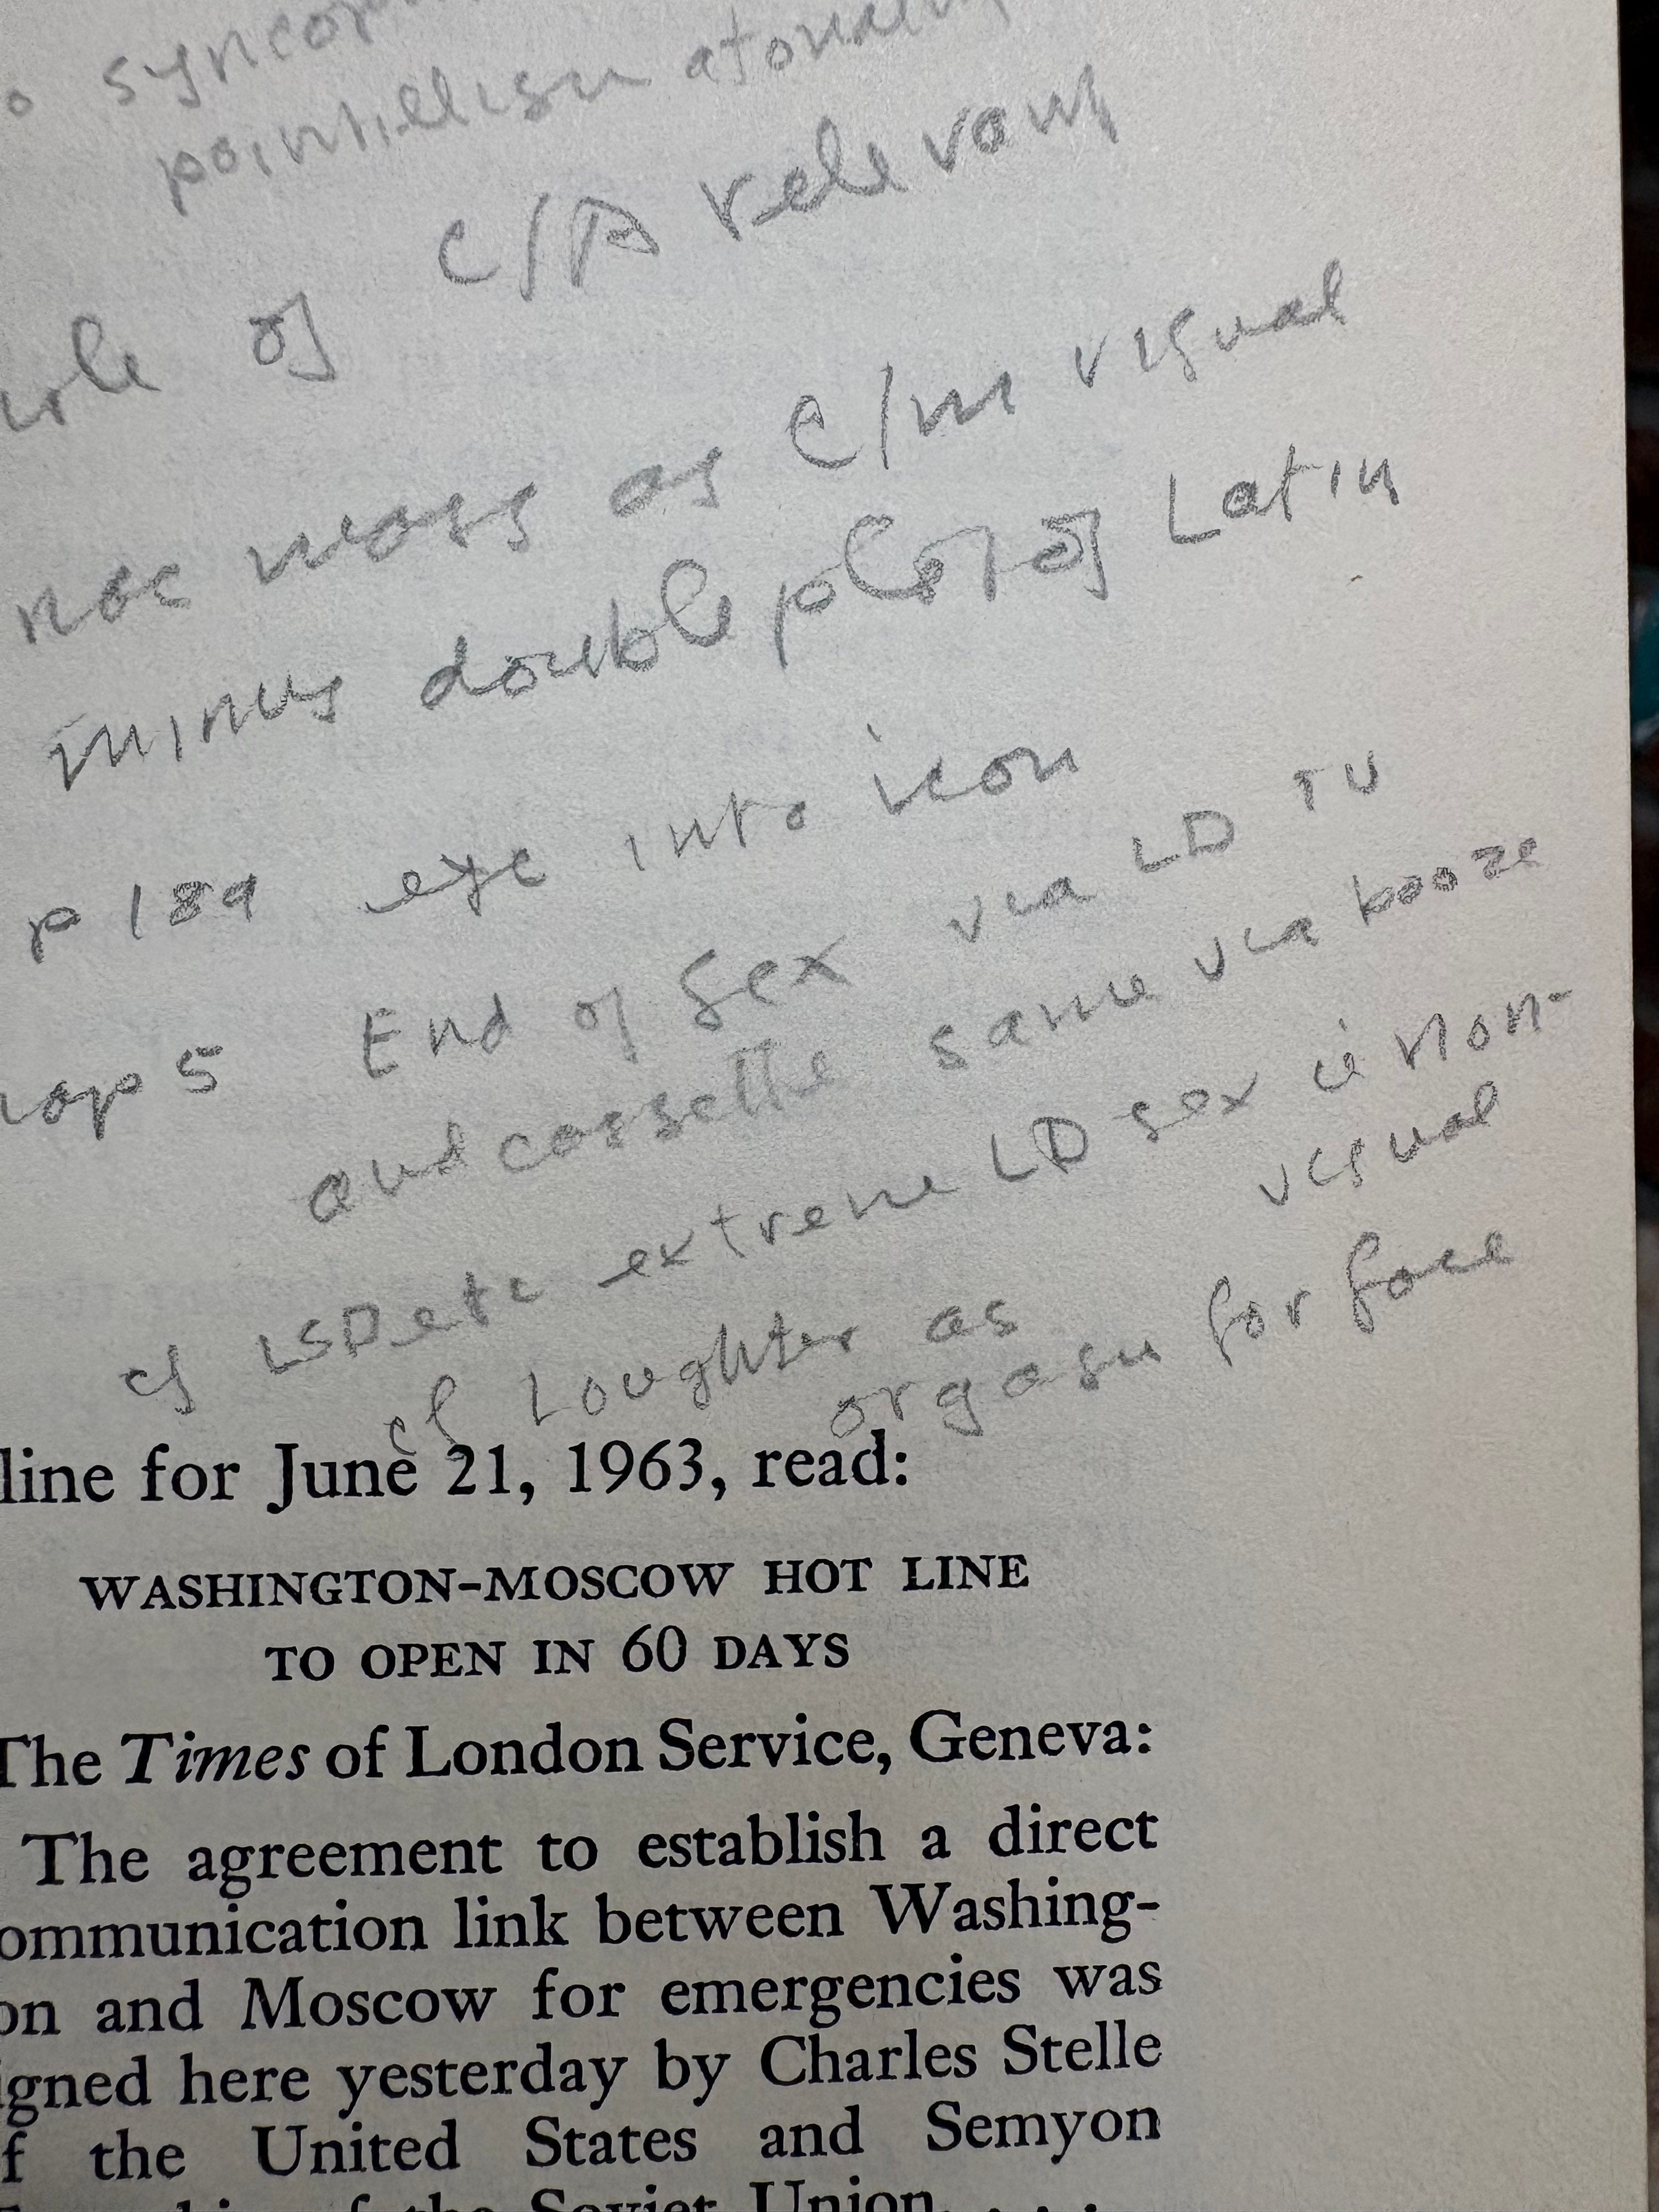 pointillism atonal
of C/A relevant
mass as C/M visual
minus double plot of Latin
p 189 eye into icon
End of Sex via LD TV
5
and cassette same via booze
cf LSD etc extreme LD sex is non-
visual
cf Laughter as
orgasm for face
line for June 21, 1963, read:
WASHINGTON-MOSCOW HOT LINE
TO OPEN IN 60 DAYS
The Times of London Service, Geneva:
The agreement to establish a direct
ommunication link between Washing-
on and Moscow for emergencies was
igned here yesterday by Charles Stelle
f the United States and Semyon
of the Soviet Union. . . .